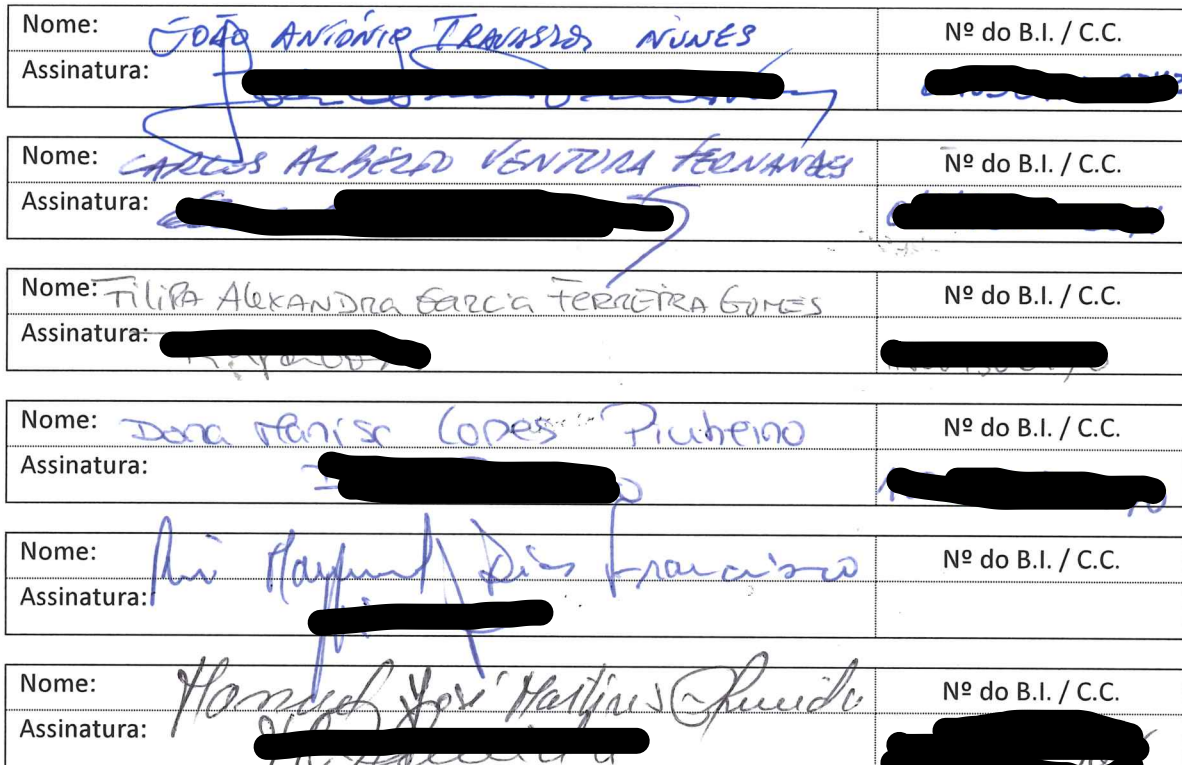 Nome: JOÃO ANTÓNIO TRAVASSOS NUNES Nº do B.I. / C.C.
Assinatura:
Nome: CARLOS ALBERTO VENTURA FERNANDES Nº do B.I. / C.C.
Assinatura:
Nome: Filipa Alexandra Garcia Ferreira Gomes Nº do B.I. / C.C.
Assinatura:
Nome: Dona Marisa Lopes Pinheiro Nº do B.I. / C.C.
Assinatura:
Nome: Rui Dias Francisco Nº do B.I. / C.C.
Assinatura:
Nome: Manuel José Martins Almeida Nº do B.I. / C.C.
Assinatura: